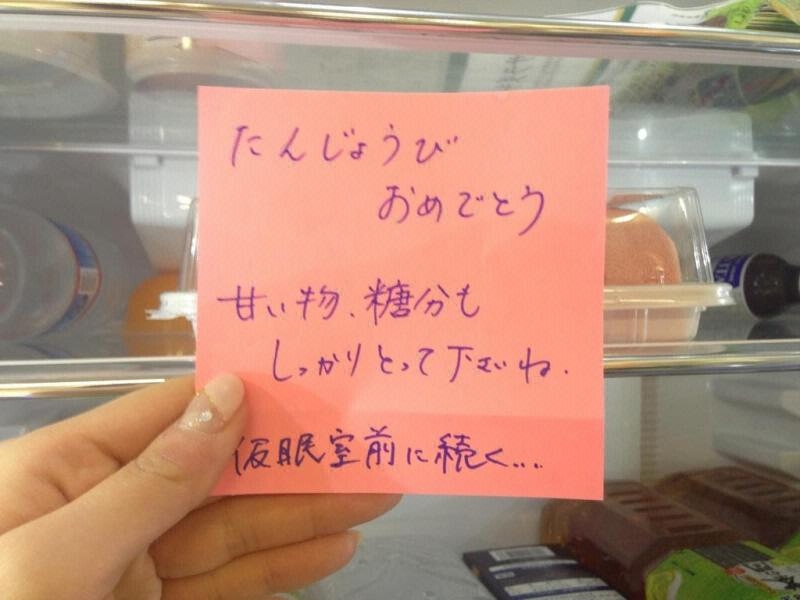 たんじょうび
おめでとう
甘い物、糖分も
しっかりとって下さいね.
仮眠室前に続く...